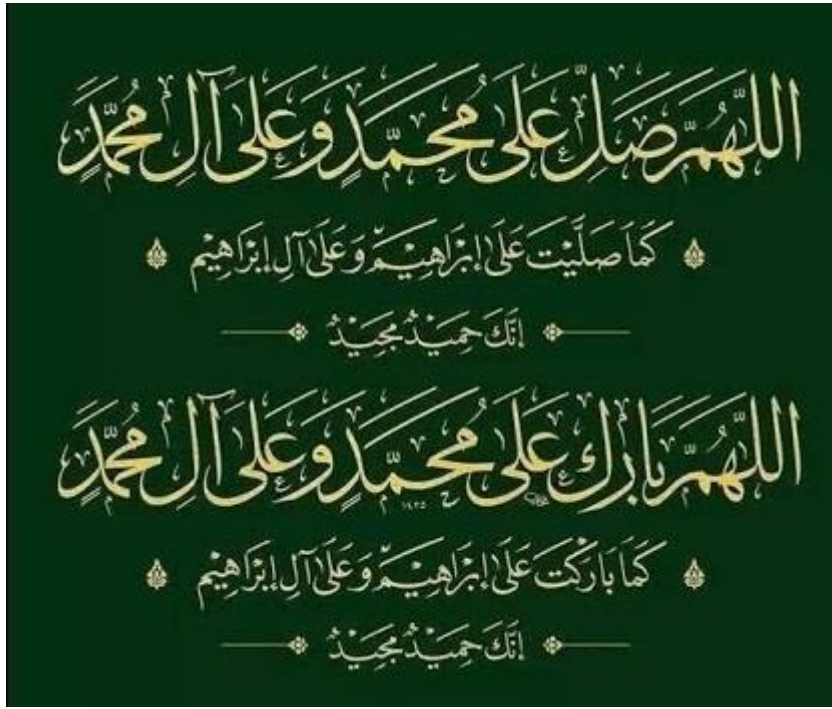 اللَّهُمَّ صَلِّ عَلَى مُحَمَّدٍ وَعَلَى آلِ مُحَمَّدٍ
كَمَا صَلَّيْتَ عَلَى إِبْرَاهِيمَ وَعَلَى آلِ إِبْرَاهِيم
إِنَّكَ حَمِيدٌ مَجِيدٌ
اللَّهُمَّ بَارِكْ عَلَى مُحَمَّدٍ وَعَلَى آلِ مُحَمَّدٍ
١٤٣٥
كَمَا بَارَكْتَ عَلَى إِبْرَاهِيمَ وَعَلَى آلِ إِبْرَاهِيم
إِنَّكَ حَمِيدٌ مَجِيدٌ